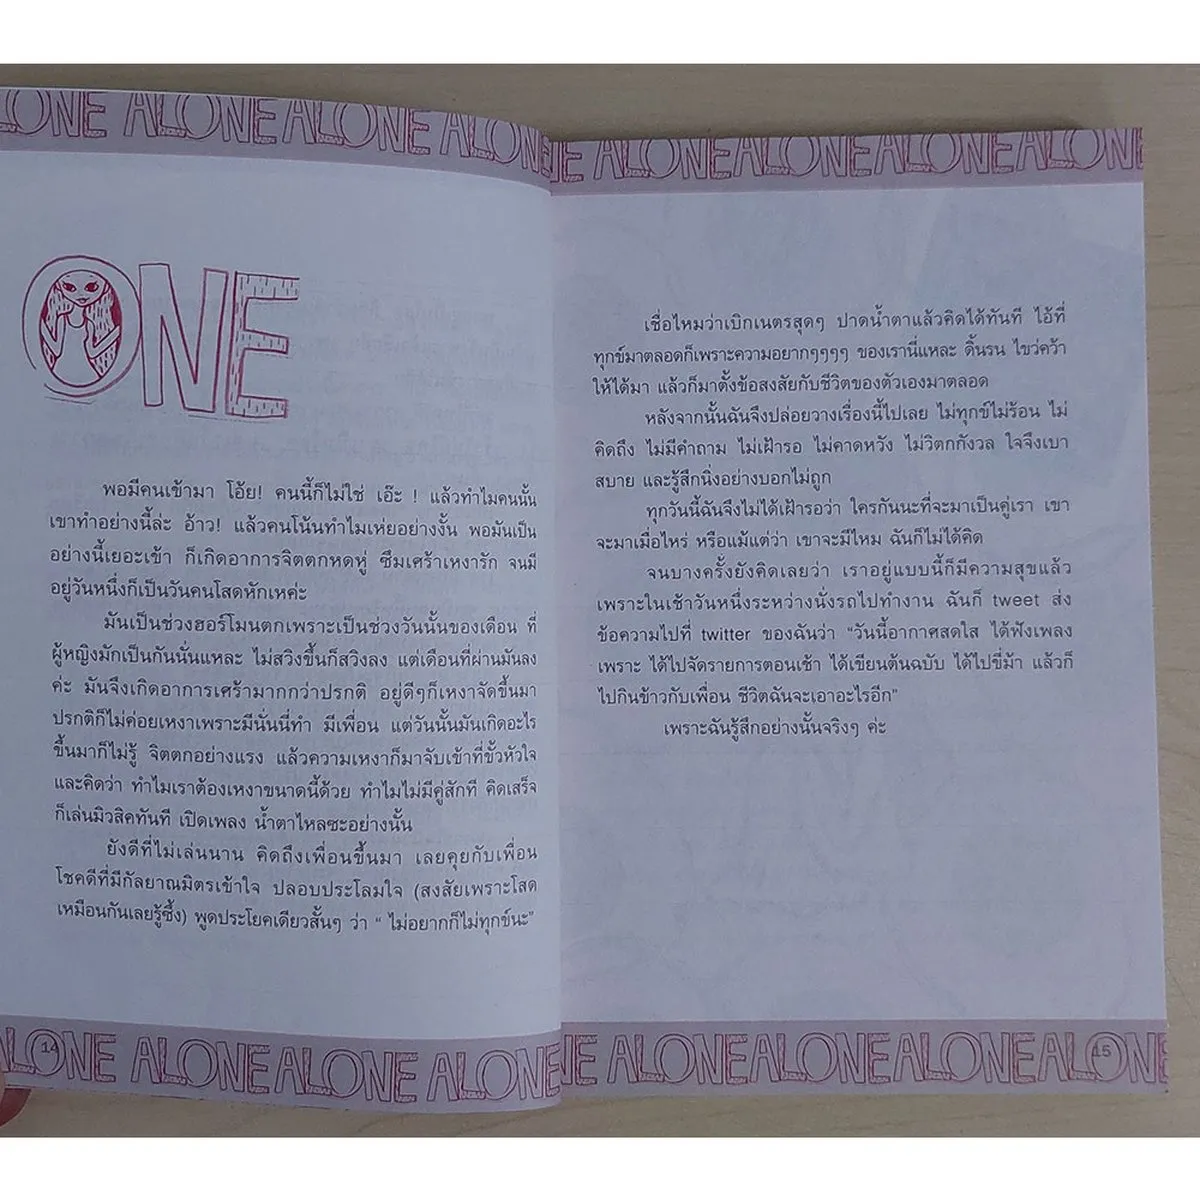 ALONE ALONE ALONE ALONE
ONE
พอมีคนเข้ามา โอ้ย! คนนี้ก็ไม่ใช่ เอ๊ะ ! แล้วทำไมคนนั้น
เขาทำอย่างนี้ล่ะ อ้าว! แล้วคนโน้นทำไมเห่ยอย่างงั้น พอมันเป็น
อย่างนี้เยอะเข้า ก็เกิดอาการจิตตกหดหู่ ซึมเศร้าเหงารัก จนมี
อยู่วันหนึ่งก็เป็นวันคนโสดหักเหค่ะ
มันเป็นช่วงฮอร์โมนตกเพราะเป็นช่วงวันนั้นของเดือน ที่
ผู้หญิงมักเป็นกันนั่นแหละ ไม่สวิงขึ้นก็สวิงลง แต่เดือนที่ผ่านมันลง
ค่ะ มันจึงเกิดอาการเศร้ามากกว่าปรกติ อยู่ดีๆก็เหงาจัดขึ้นมา
ปรกติก็ไม่ค่อยเหงาเพราะมีนั่นนี่ทำ มีเพื่อน แต่วันนั้นมันเกิดอะไร
ขึ้นมาก็ไม่รู้ จิตตกอย่างแรง แล้วความเหงาก็มาจับเข้าที่ขั้วหัวใจ
และคิดว่า ทำไมเราต้องเหงาขนาดนี้ด้วย ทำไมไม่มีคู่สักที คิดเสร็จ
ก็เล่นมิวสิคทันที เปิดเพลง น้ำตาไหลซะอย่างนั้น
ยังดีที่ไม่เล่นนาน คิดถึงเพื่อนขึ้นมา เลยคุยกับเพื่อน
โชคดีที่มีกัลยาณมิตรเข้าใจ ปลอบประโลมใจ (สงสัยเพราะโสด
เหมือนกันเลยรู้ซึ้ง) พูดประโยคเดียวสั้นๆ ว่า “ ไม่อยากก็ไม่ทุกข์นะ”
14
ALONE ALONE ALONE ALONE
NE ALONE ALONE ALONE ALONE
เชื่อไหมว่าเบิกเนตรสุดๆ ปาดน้ำตาแล้วคิดได้ทันที ไอ้ที่
ทุกข์มาตลอดก็เพราะความอยากๆๆๆๆ ของเรานี่แหละ ดิ้นรน ไขว่คว้า
ให้ได้มา แล้วก็มาตั้งข้อสงสัยกับชีวิตของตัวเองมาตลอด
หลังจากนั้นฉันจึงปล่อยวางเรื่องนี้ไปเลย ไม่ทุกข์ไม่ร้อน ไม่
คิดถึง ไม่มีคำถาม ไม่เฝ้ารอ ไม่คาดหวัง ไม่วิตกกังวล ใจจึงเบา
สบาย และรู้สึกนิ่งอย่างบอกไม่ถูก
ทุกวันนี้ฉันจึงไม่ได้เฝ้ารอว่า ใครกันนะที่จะมาเป็นคู่เรา เขา
จะมาเมื่อไหร่ หรือแม้แต่ว่า เขาจะมีไหม ฉันก็ไม่ได้คิด
จนบางครั้งยังคิดเลยว่า เราอยู่แบบนี้ก็มีความสุขแล้ว
เพราะในเช้าวันหนึ่งระหว่างนั่งรถไปทำงาน ฉันก็ tweet ส่ง
ข้อความไปที่ twitter ของฉันว่า “วันนี้อากาศสดใส ได้ฟังเพลง
เพราะ ได้ไปจัดรายการตอนเช้า ได้เขียนต้นฉบับ ได้ไปขี่ม้า แล้วก็
ไปกินข้าวกับเพื่อน ชีวิตฉันจะเอาอะไรอีก”
เพราะฉันรู้สึกอย่างนั้นจริงๆ ค่ะ
NE ALONE ALONE ALONE ALONE
15